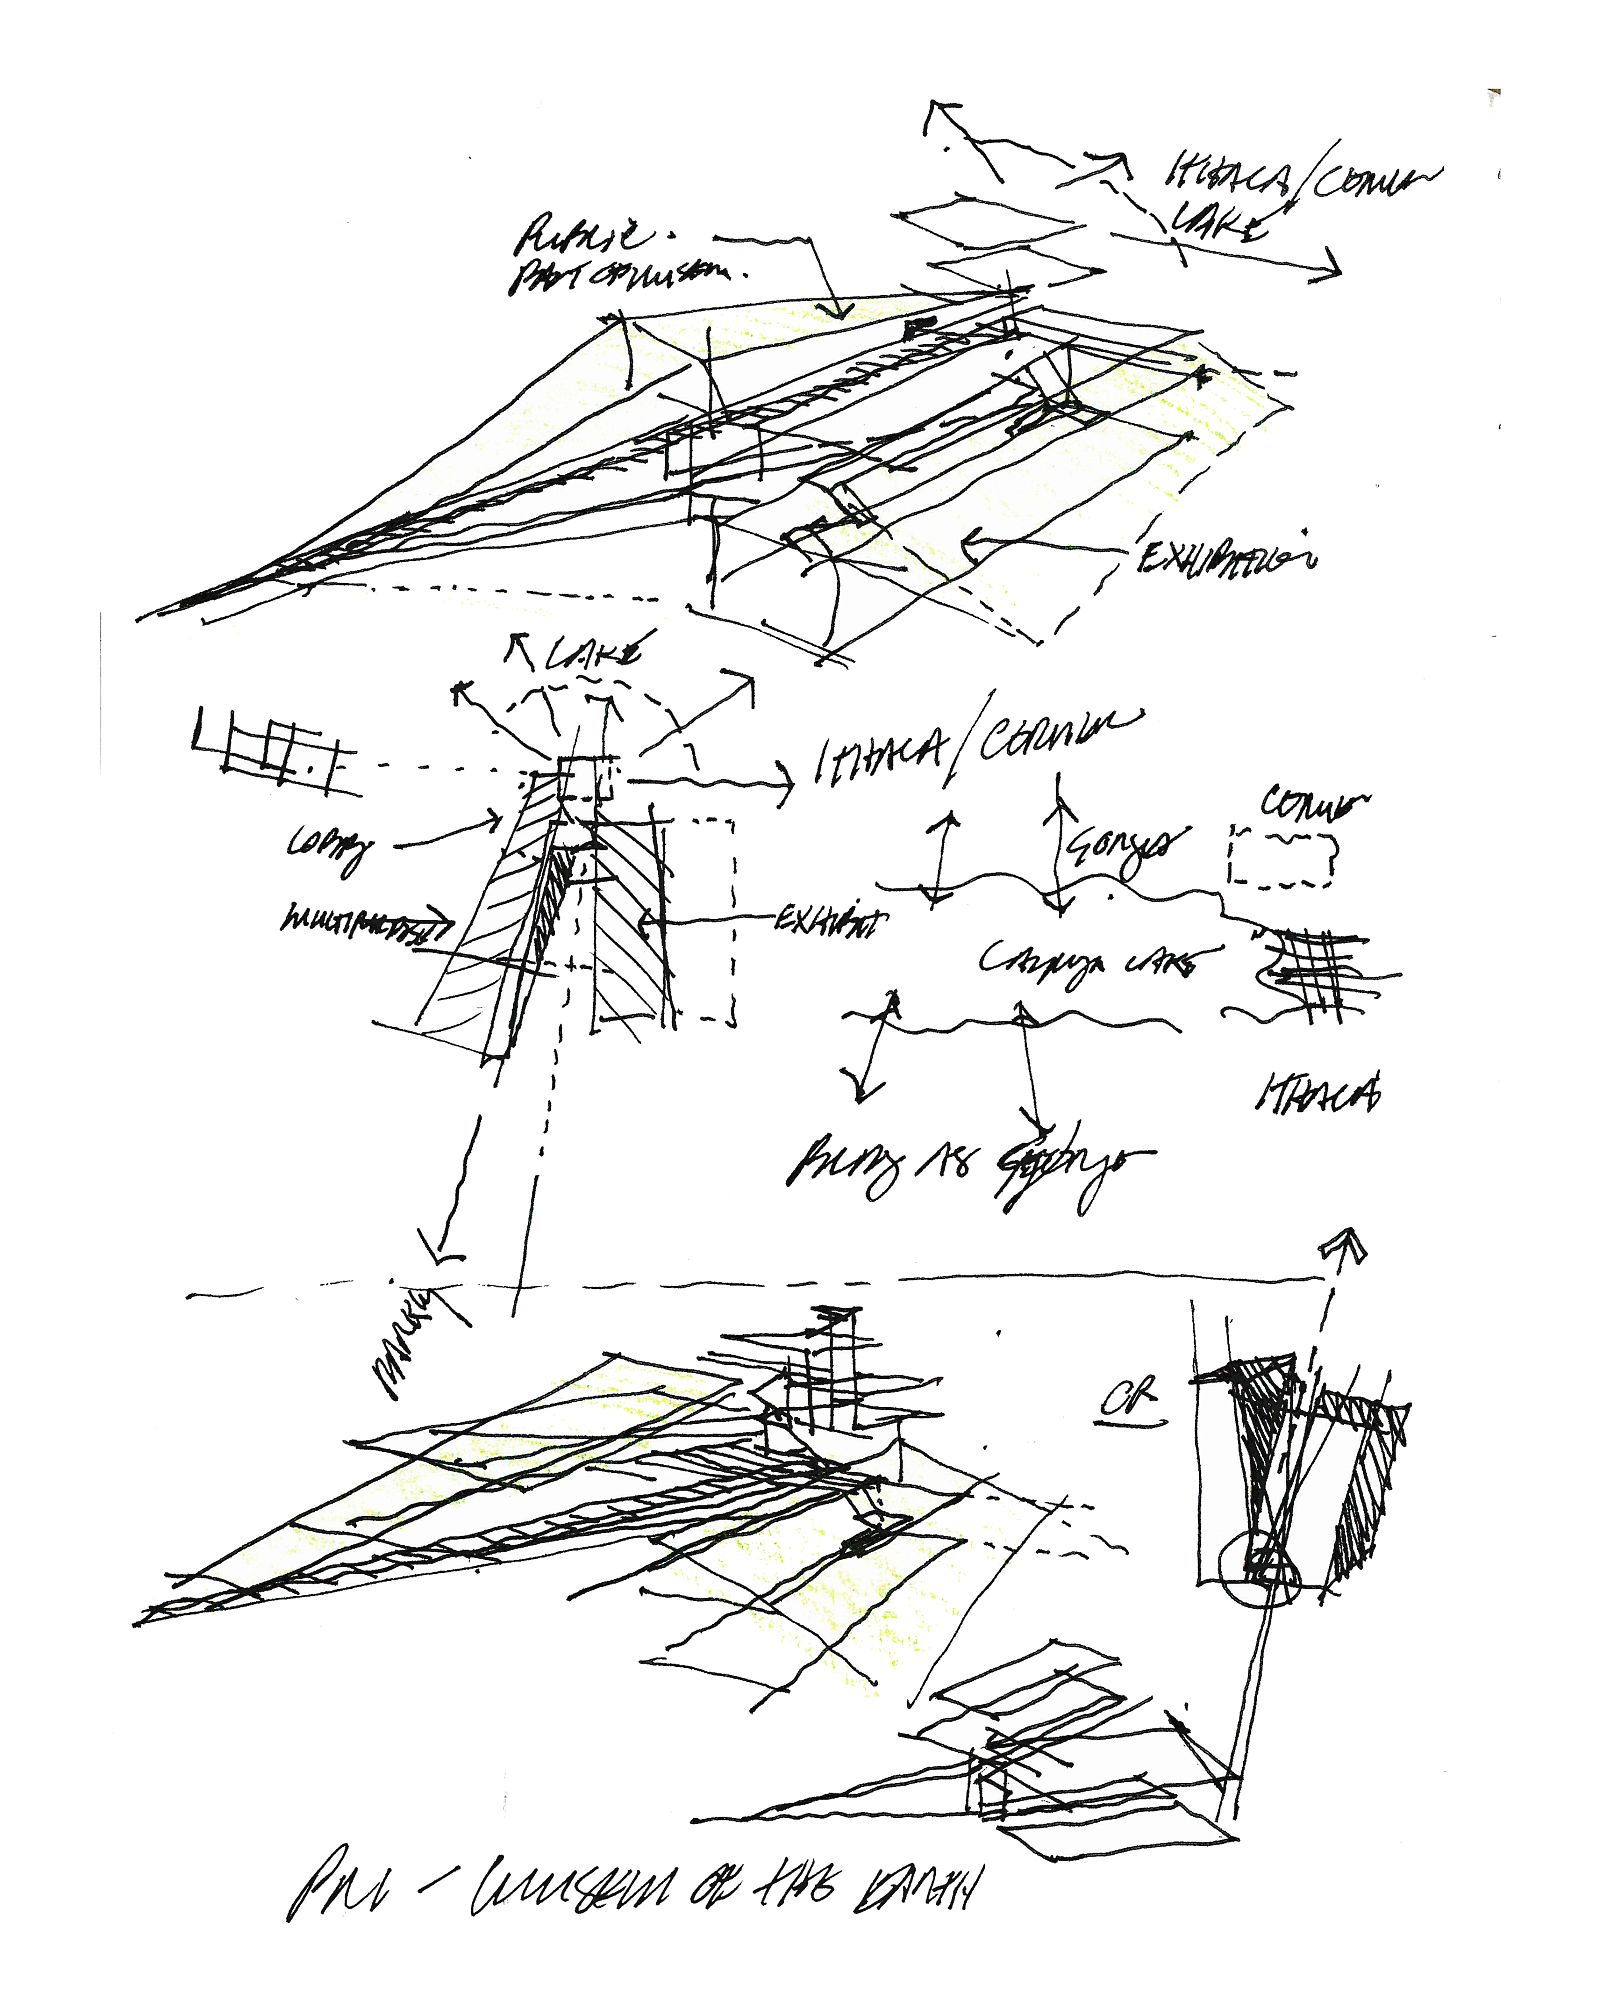 ITHACA/CORNELL
LAKE
PUBLIC
PART OF MUSEUM.
EXHIBITION
LAKE
ITHACA/CORNELL
LOBBY
MULTIPURPOSE
EXHIBIT
Gorges
CORNELL
CAYUGA LAKE
ITHACA
BLDG AS
PARKING
CR
PRI - MUSEUM OF THE EARTH